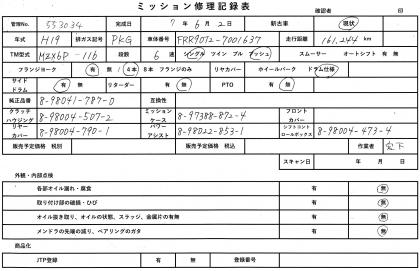 ミッション修理記録表
確認者 印
管理No. 553034 完成日 7 年 6 月 2 日 新古車 現状
年式 H19 排ガス記号 PKG 車体番号 FRR90T2-7001637 走行距離 161,244 km
TM型式 MZX6P-11b 段数 6 速 シングル ツイン プル プッシュ スムーサー オートシフト 有 無
フランジヨーク 有 無 4本 8本 フランジのみ リヤカバー ホイールパーク ドラム仕様
サイドドラム 有 無 リターダー 有 無 PTO 有 無
純正品番 8-98041-787-0 互換性
クラッチハウジング 8-98004-507-2 ミッションケース 8-97388-872-4 フロントカバー
リヤーカバー 8-98004-790-1 パワーアシスト 8-98022-853-1 シフトコントロールボックス 8-98004-473-4
販売予定価格 税別 販売予定価格 税込 作業者
スキャン日 年 月 日
外観・内部点検
各部オイル漏れ・腐食 有 無
取り付け部の破損・ひび 有 無
オイル抜き取り、オイルの状態、スラッジ、金属片の有無 有 無
メンドラの先端の減り、ベアリングのガタ 有 無
商品化
JTP登録 有 無 登録番号